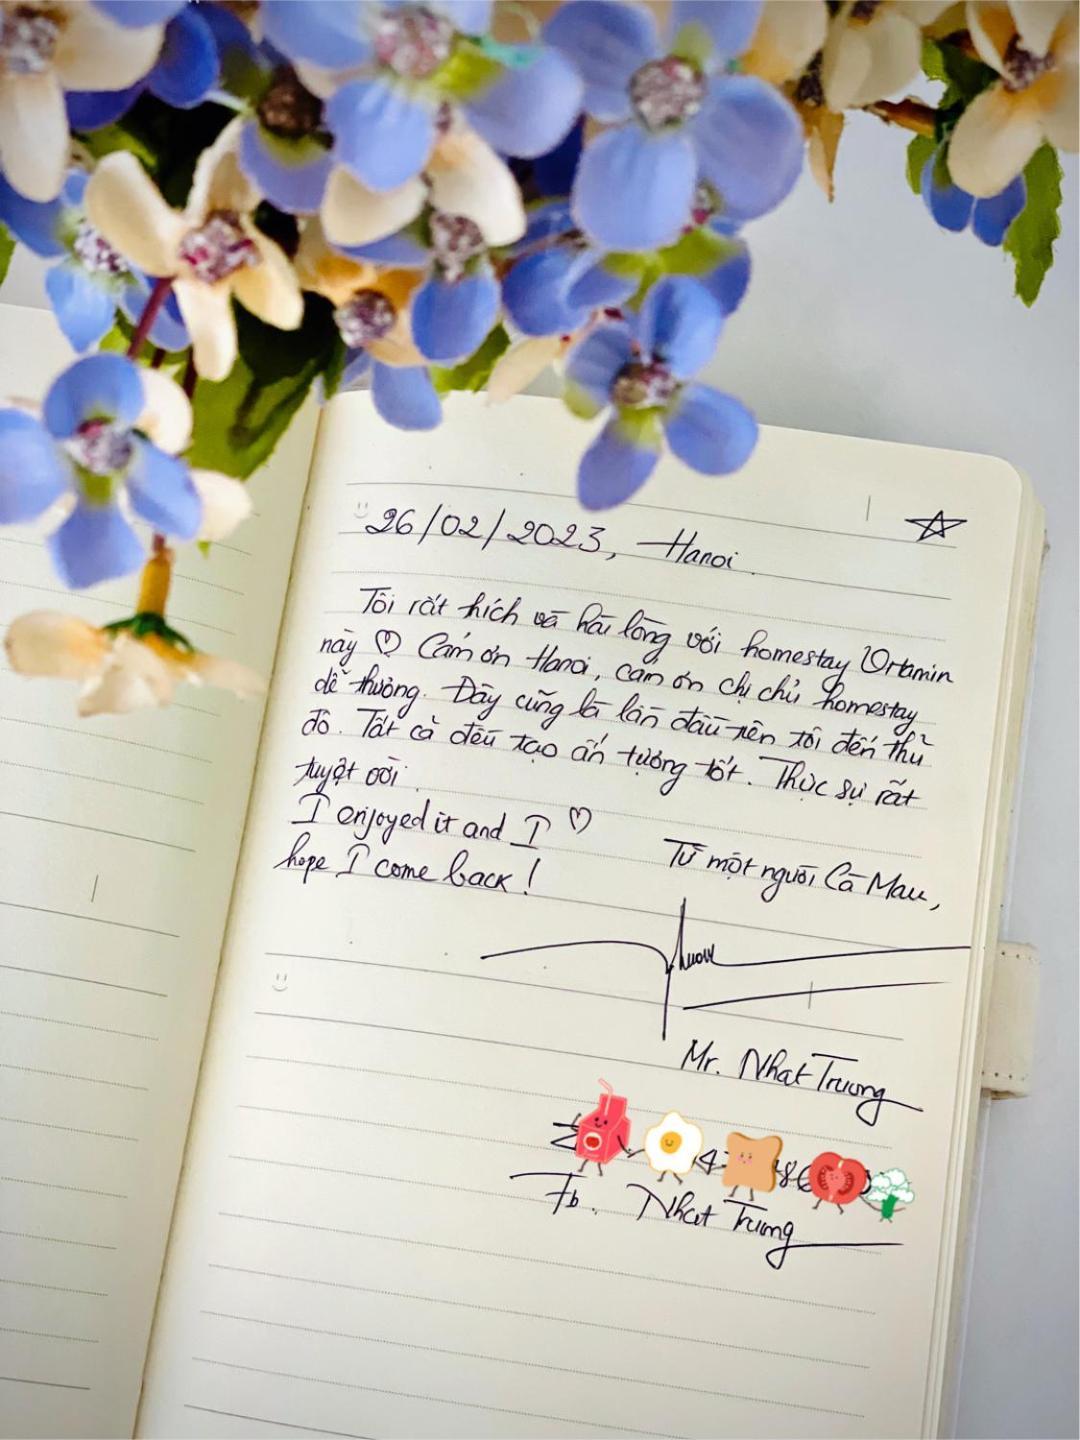 26/02/2023, Hanoi
Tôi rất thích và hài lòng với homestay Vitamin
này ♡ Cám ơn Hanoi, cám ơn chị chủ homestay
dễ thương. Đây cũng là lần đầu tiên tôi đến thủ
đô. Tất cả đều tạo ấn tượng tốt. Thực sự rất
tuyệt vời.
I enjoyed it and I ♡
hope I come back!
Từ một người Cà Mau,
Mr. Nhật Trương
Fb. Nhat Truong